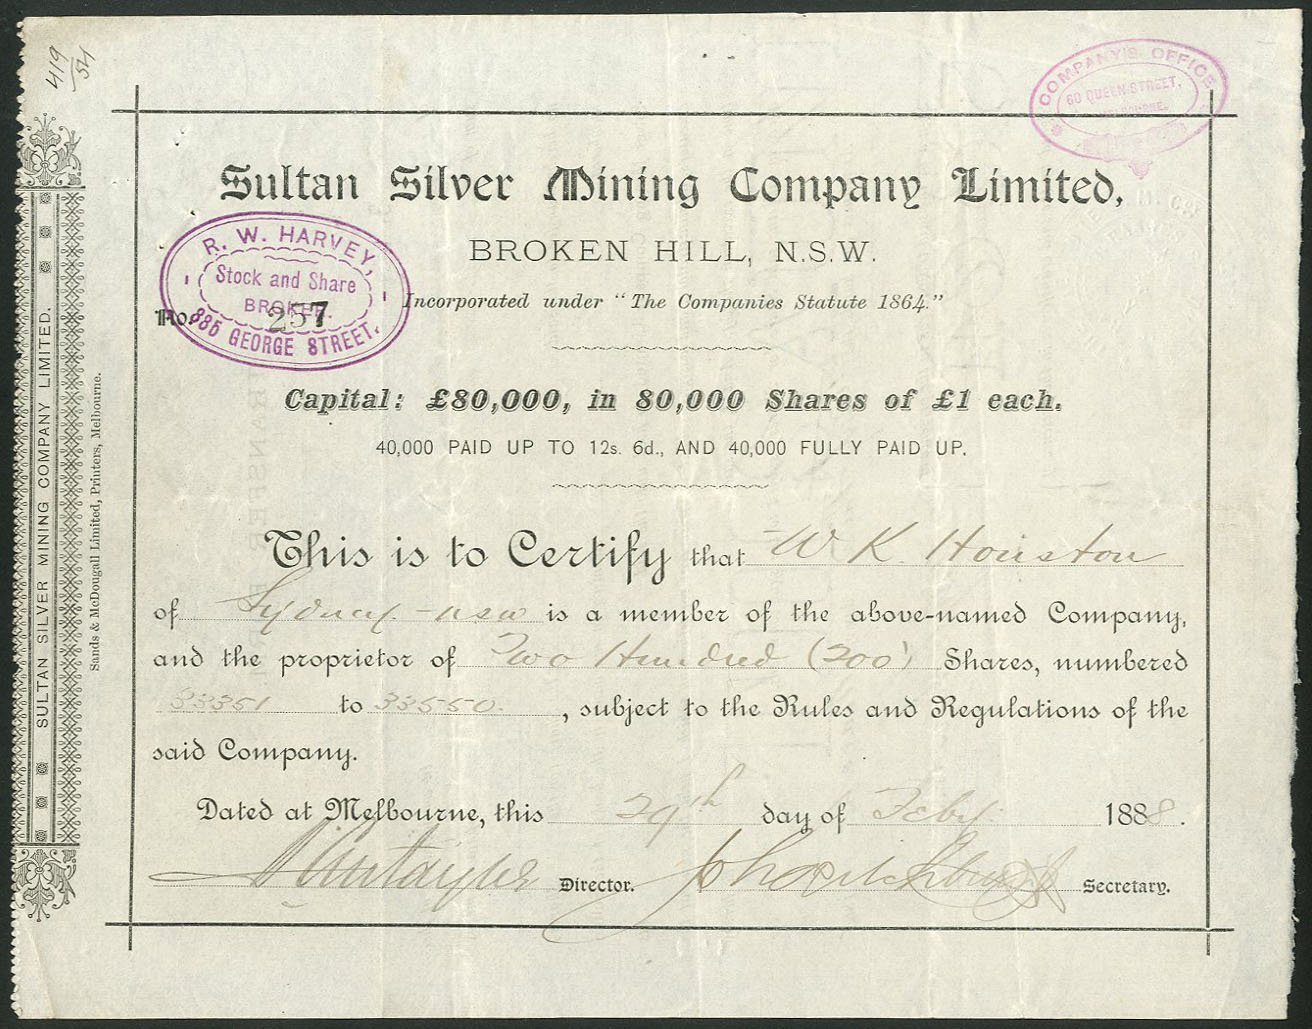 419
54
COMPANY'S OFFICE
60 QUEEN STREET,
Sultan Silver Mining Company Limited,
BROKEN HILL, N.S.W.
R. W. HARVEY,
Stock and Share
BROKER.
GEORGE STREET.
No. 257
Incorporated under “The Companies Statute 1864.”
Capital: £80,000, in 80,000 Shares of £1 each.
40,000 PAID UP TO 12s. 6d., AND 40,000 FULLY PAID UP.
This is to Certify that W K. Houston
of Sydney - nsw is a member of the above-named Company,
and the proprietor of Two Hundred (200) Shares, numbered
33351 to 33550. , subject to the Rules and Regulations of the
said Company.
Dated at Melbourne, this 29th day of Feby 1888.
Director. Secretary.
SULTAN SILVER MINING COMPANY LIMITED.
Sands & McDougall Limited, Printers, Melbourne.